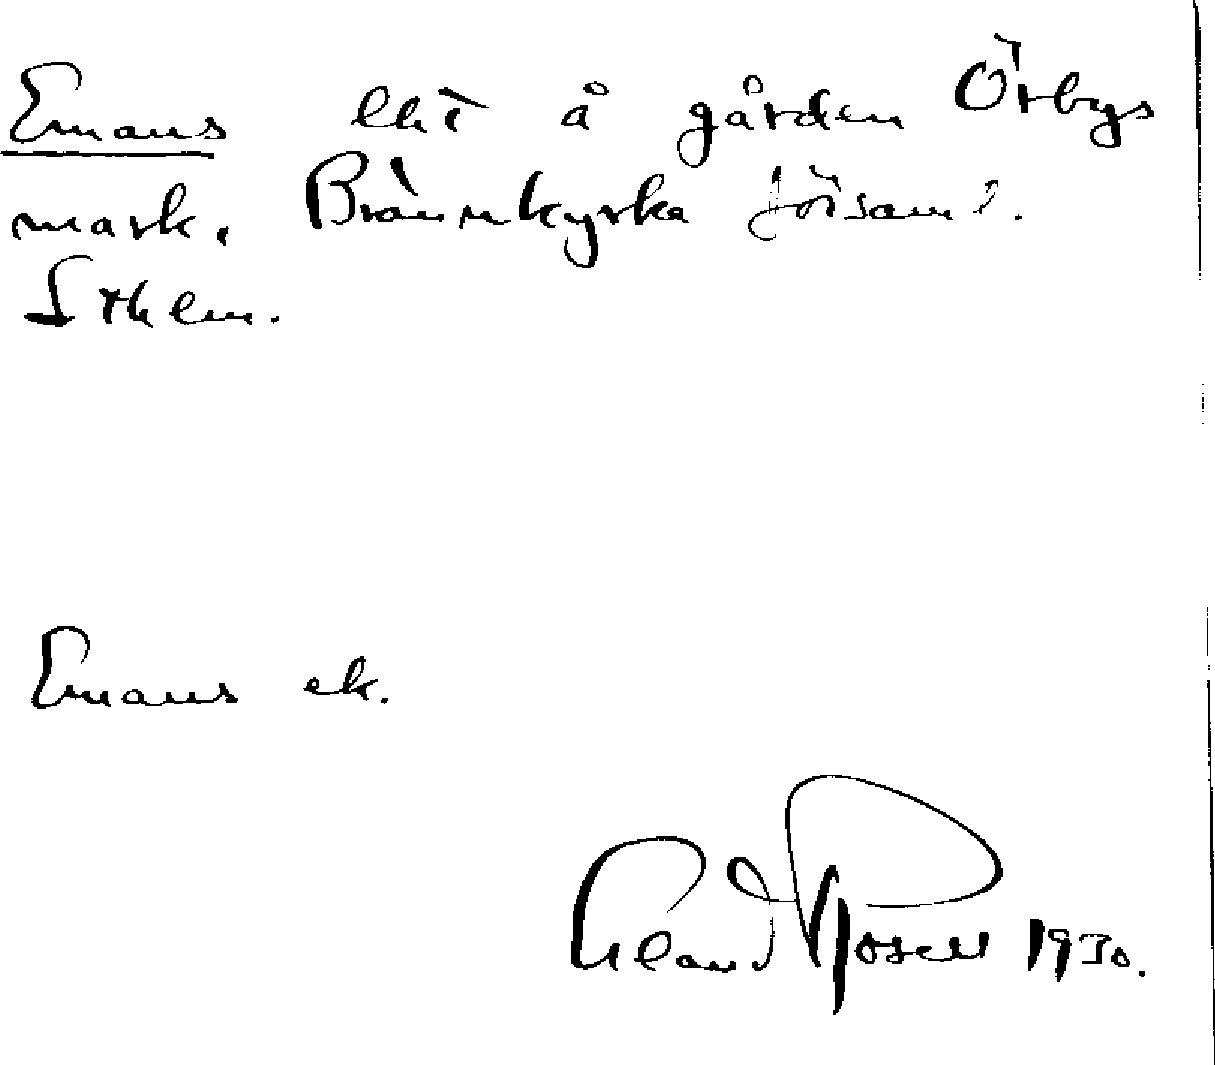 Emaus lht å gården Örbys
mark, Brännkyrka församl.
Sthlm.
Emaus ek.
Erland Rosell 1930.